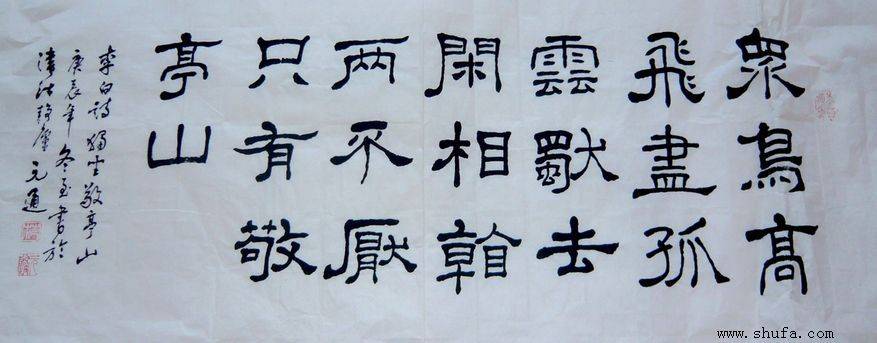 眾鳥高
飛盡孤
雲獨去
閑相看
两不厭
只有敬
亭山
李白詩獨坐敬亭山
庚辰年冬至書於
元通
www.shufa.com